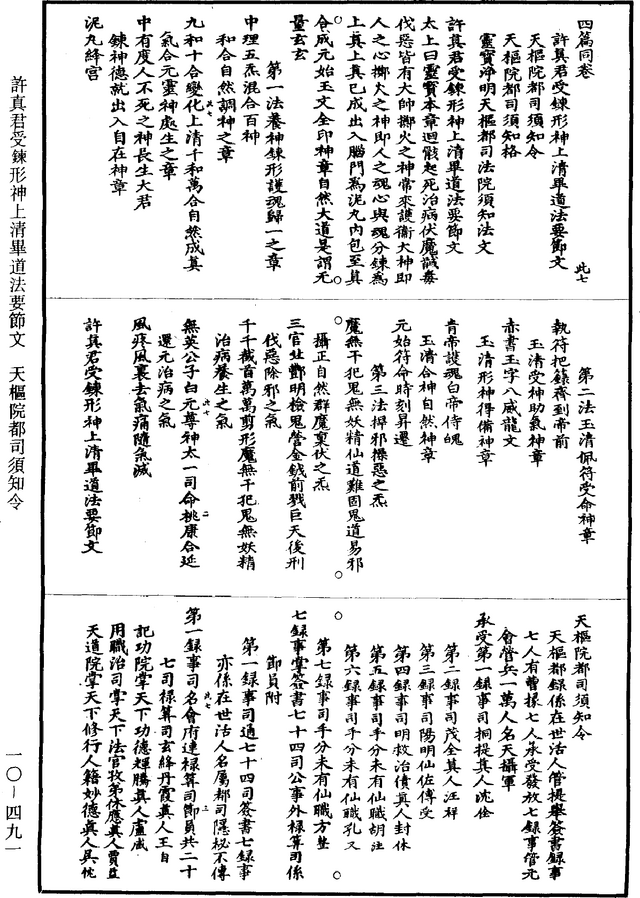 四篇同卷　此七
許真君受鍊形神上清畢道法要節文
天樞院都司須知令
天樞院都司須知格
靈寶淨明天樞都司法院須知法文
許真君受鍊形神上清畢道法要節文
太上曰靈寶本章迴骸起死治病伏魔馘毒
伐惡皆有大帥擲火之神常來護衞大神即
人之心擲火之神即人之魂心與魂分鍊為
上真上真已成出入腦門為泥丸內包至真
合成元始玉文全印神章自然大道是謂无
量玄玄
第一法養神鍊形護魂歸一之章
中理五炁混合百神
和合自然調神之章
九和十合變化上清千和萬合自然成真
氣合元靈神處生之章
中有度人不死之神長生大君
鍊神德就出入自在神章
泥丸絳宮
第二法玉清佩符受命神章
執符把籙齋到帝前
玉清受神助氣神章
赤書玉字八威龍文
玉清形神得備神章
青帝護魂白帝侍魄
玉清合神自然神章
元始符命時刻昇遷
第三法捍邪摽惡之炁
魔無干犯鬼無妖精仙道難固鬼道易邪
攝正自然群魔稟伏之炁
三官北酆明檢鬼營金鉞前戮巨天後刑
伐惡除邪之氣
千千截首萬萬剪形魔無干犯鬼無妖精
治病養生之氣
無英公子白元尊神太一司命桃康合延
還元治病之氣
風疼風裏去氣痛隨氣滅
許真君受鍊形神上清畢道法要節文
天樞院都司須知令
天樞都錄係在世活人管提舉簽書錄事
七人有曹椽七人承受發放七錄事管元
會管兵一萬人名天攝軍
承受第一錄事司桐提真人沈佺
第二錄事司茂全真人汪祥
第三錄事司陽明仙佐傅受
第四錄事司明救治債真人封休
第五錄事司手分未有仙職胡注
第六錄事司手分未有仙職孔又
第七錄事司手分未有仙職方整
七錄事掌簽書七十四司公事外祿算司係
節員附
第一錄事司通七十四司簽書七錄事
亦係在世活人名屬都司隱秘不傳
第一錄事司名會府連祿算司節員共二十
七司祿算司玄絳丹霞真人王自
記功院掌天下功德輝騰真人盧威
用職治司掌天下法官救苐休應真人賈益
天道院掌天下修行人籍妙德真人吳侂
許真君受鍊形神上清畢道法要節文　天樞院都司須知令
一〇－四九一